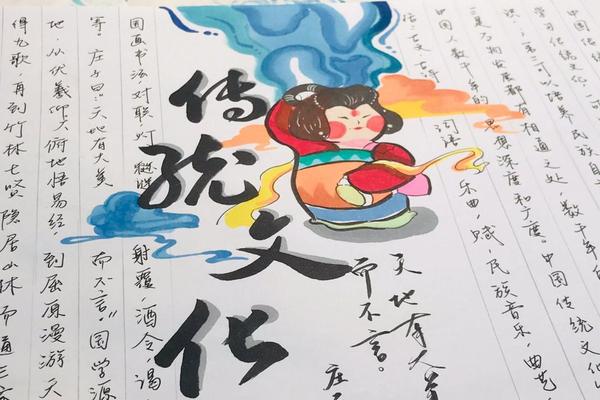 中国传统
学习传统文化,可以培养民族自
有相通之处,数千年
中国人数千年的思想深度和广度。中国传统文化
词语、乐曲、赋、民族音乐、曲艺、
传统文化
天地有大美
而不言。
庄
国画书法对联灯谜射覆,酒令,谒
等。庄子曰:天地有大美而不言。"国学源
地,从伏羲仰天俯地悟易经,到屈原漫游天
得九歌,再到竹林七贤隐居山林而通三玄